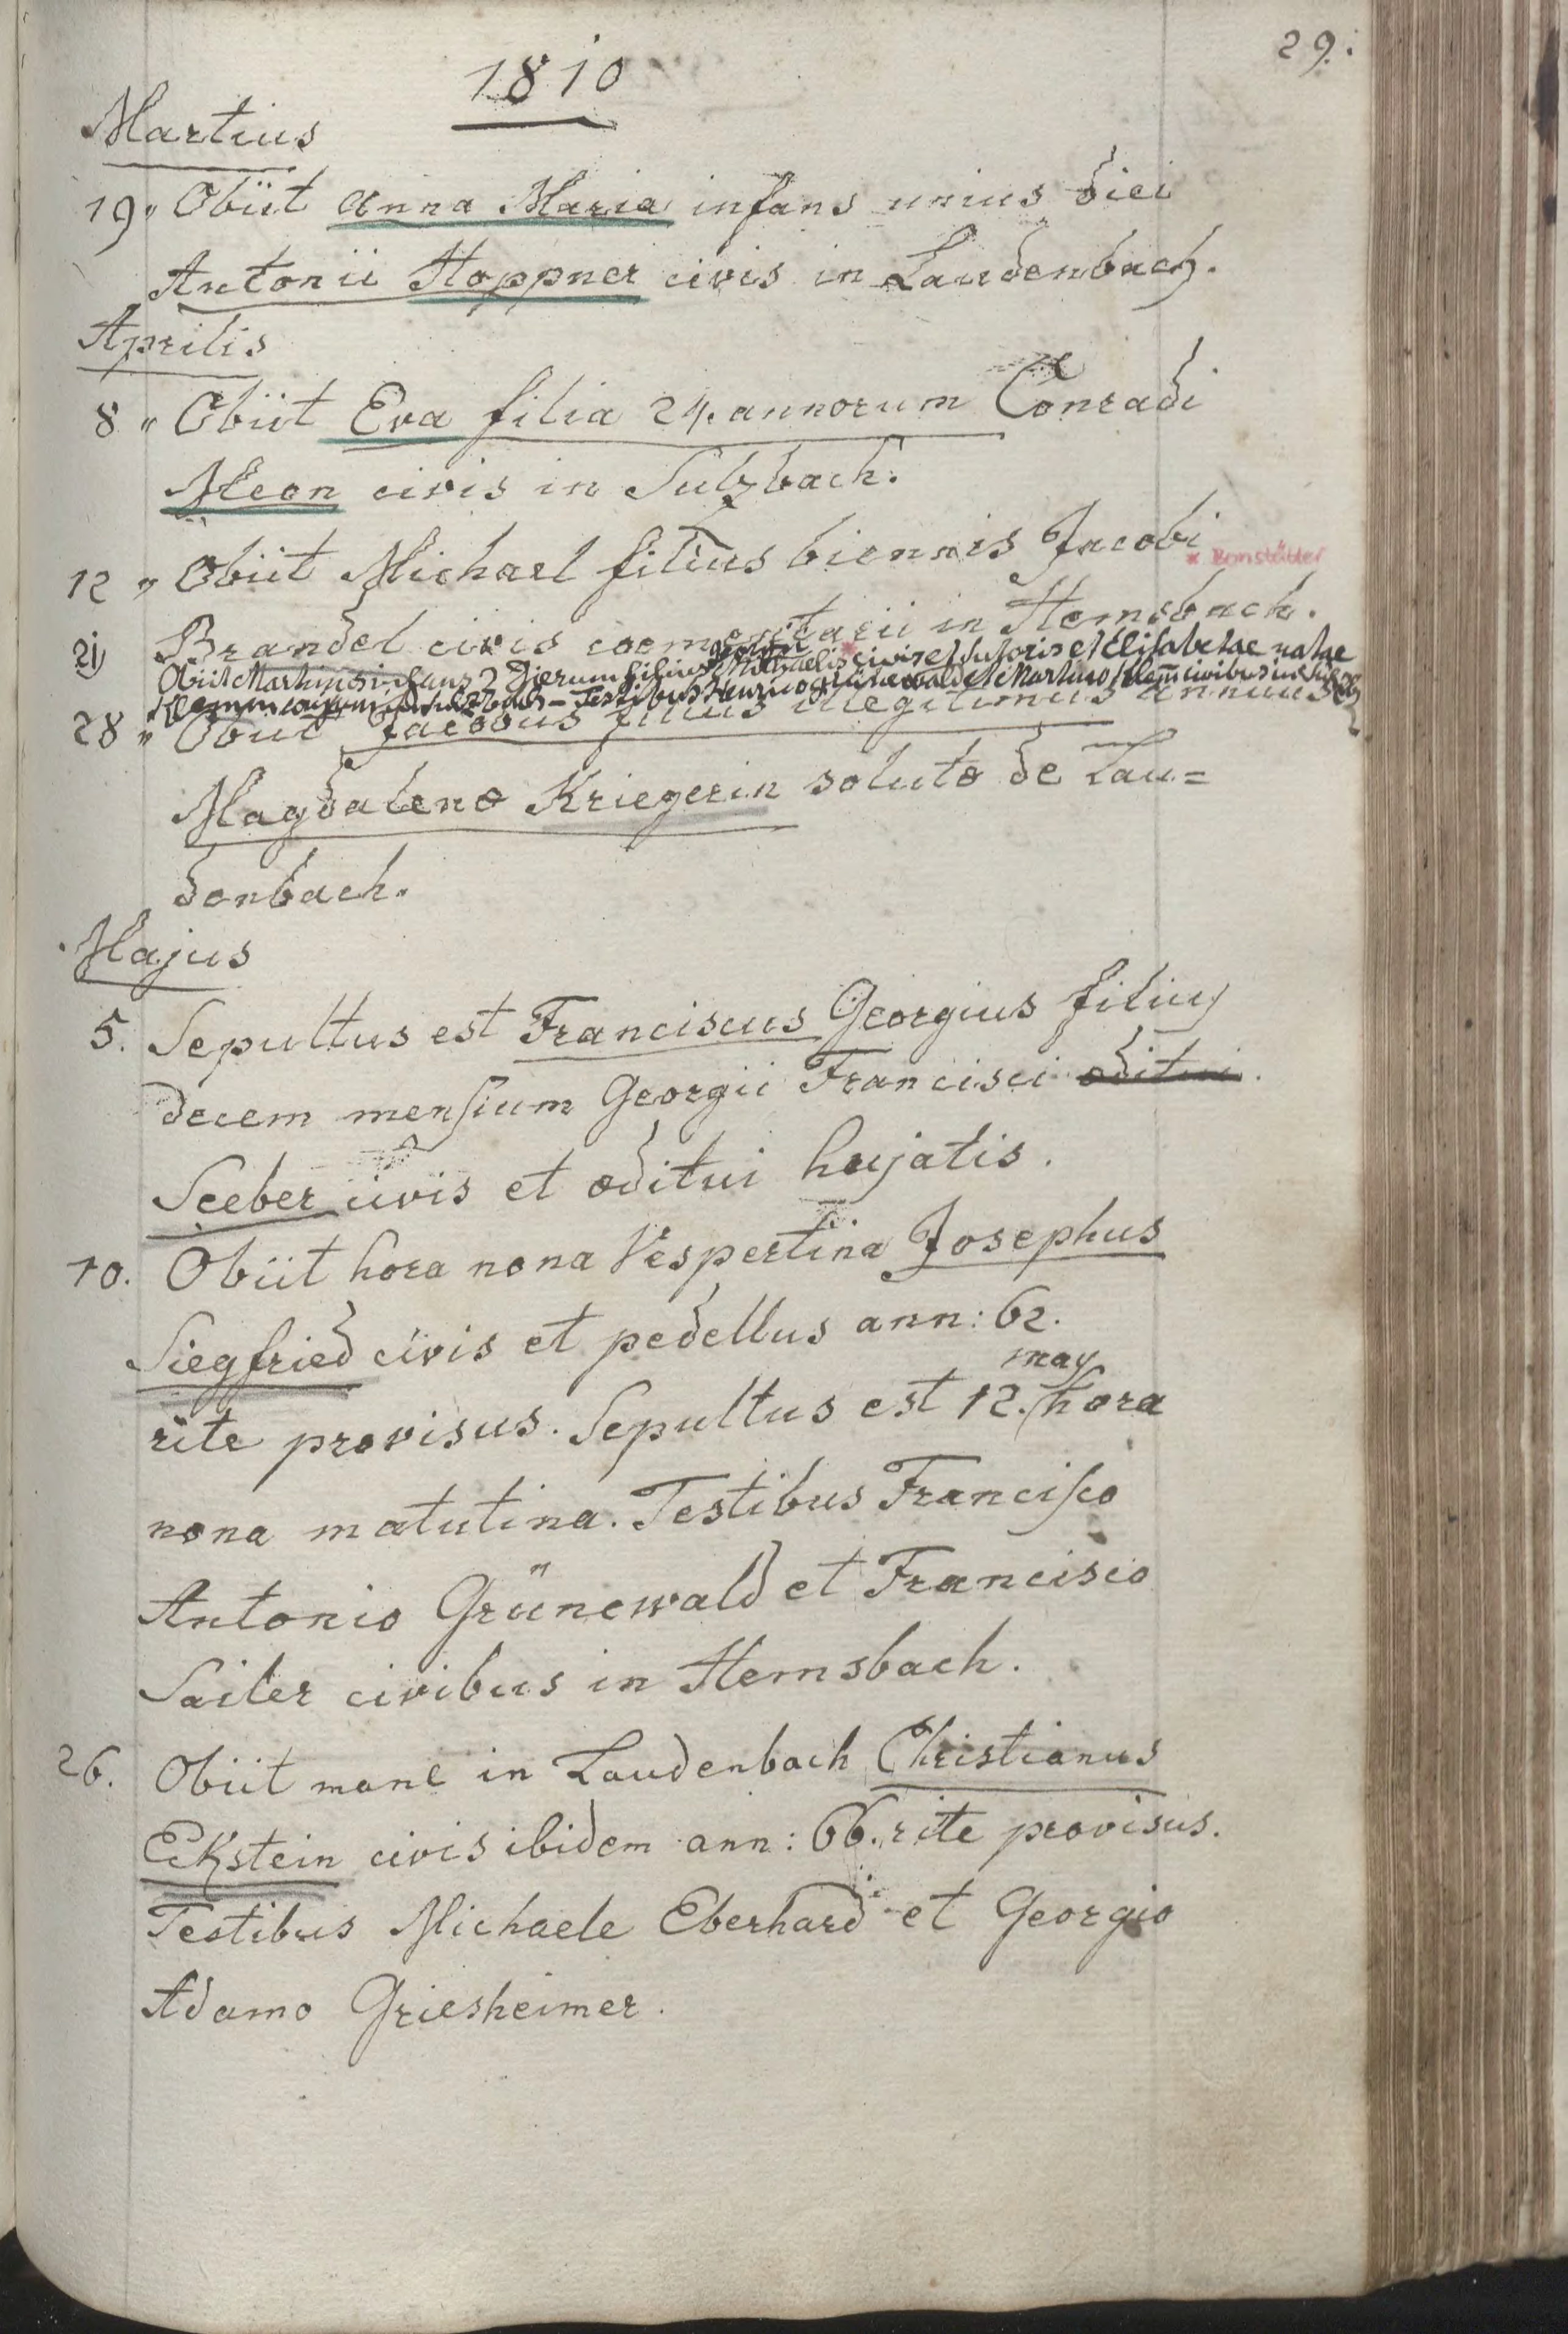 29.
1810
Martius
19 " Obiit Anna Maria infans unius diei
Antonii Hoppner civis in Laudenbach.
Aprilis
8 " Obiit Eva filia 24. annorum Conradi
Meon civis in Sulzbach.
12 " Obiit Michael filius biennis Jacobi
* Bonstätter
Brandel civis coementarii in Hemsbach.
21) Obiit Martinus infans 7 Dierum filius Michaelis * civis et sutoris et Elisabetae natae
Klemm conjugum in Sulzbach – Testibus Henrico Grünewald et Martino Klem̄ civibus in
28 " Obiit Jacobus filius illegitimus annuus
Magdalenæ Kriegerin solutæ de Lau=
denbach.
Majus
5. Sepultus est Franciscus Georgius filius
decem mensium Georgii Francisci æditui
Seeber civis et æditui hujatis.
10. Obiit hora nona Vespertina Josephus
Siegfried civis et pedellus ann: 62.
rite provisus. Sepultus est 12. may hora
nona matutina. Testibus Francisco
Antonio Grünewald et Francisco
Sailer civibus in Hemsbach.
26. Obiit mane in Laudenbach Christianus
Eckstein civis ibidem ann: 66. rite provisus.
Testibus Michaele Eberhard et Georgio
Adamo Griesheimer.